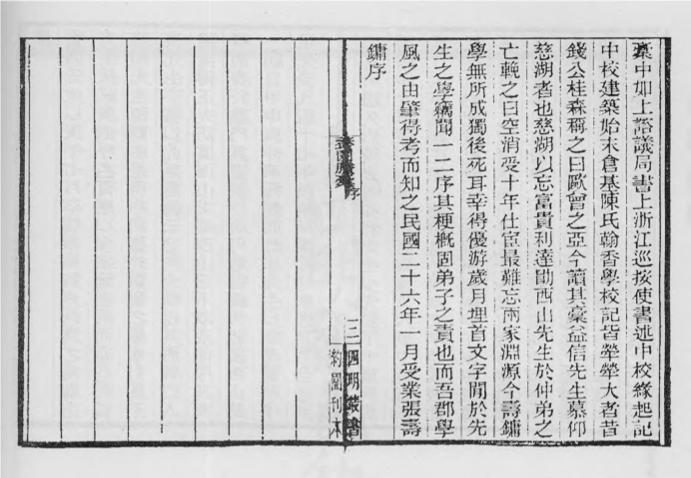 稾中如上諮議局書上浙江巡按使書述中校緣起記
中校建築始末倉基陳氏翰香學校記皆犖犖大者昔
錢公桂森稱之曰歐曾之亞今讀其稾益信先生慕仰
慈湖者也慈湖以忘富貴利達勖西山先生於仲弟之
亡輓之曰空消受十年仕宦最難忘兩家淵源今壽鏞
學無所成獨後死耳幸得優游歲月埋首文字閒於先
生之學竊聞一二序其梗概固弟子之責也而吾郡學
風之由肇得考而知之民國二十六年一月受業張壽
鏞序
序
三
四明叢書
約園刊本